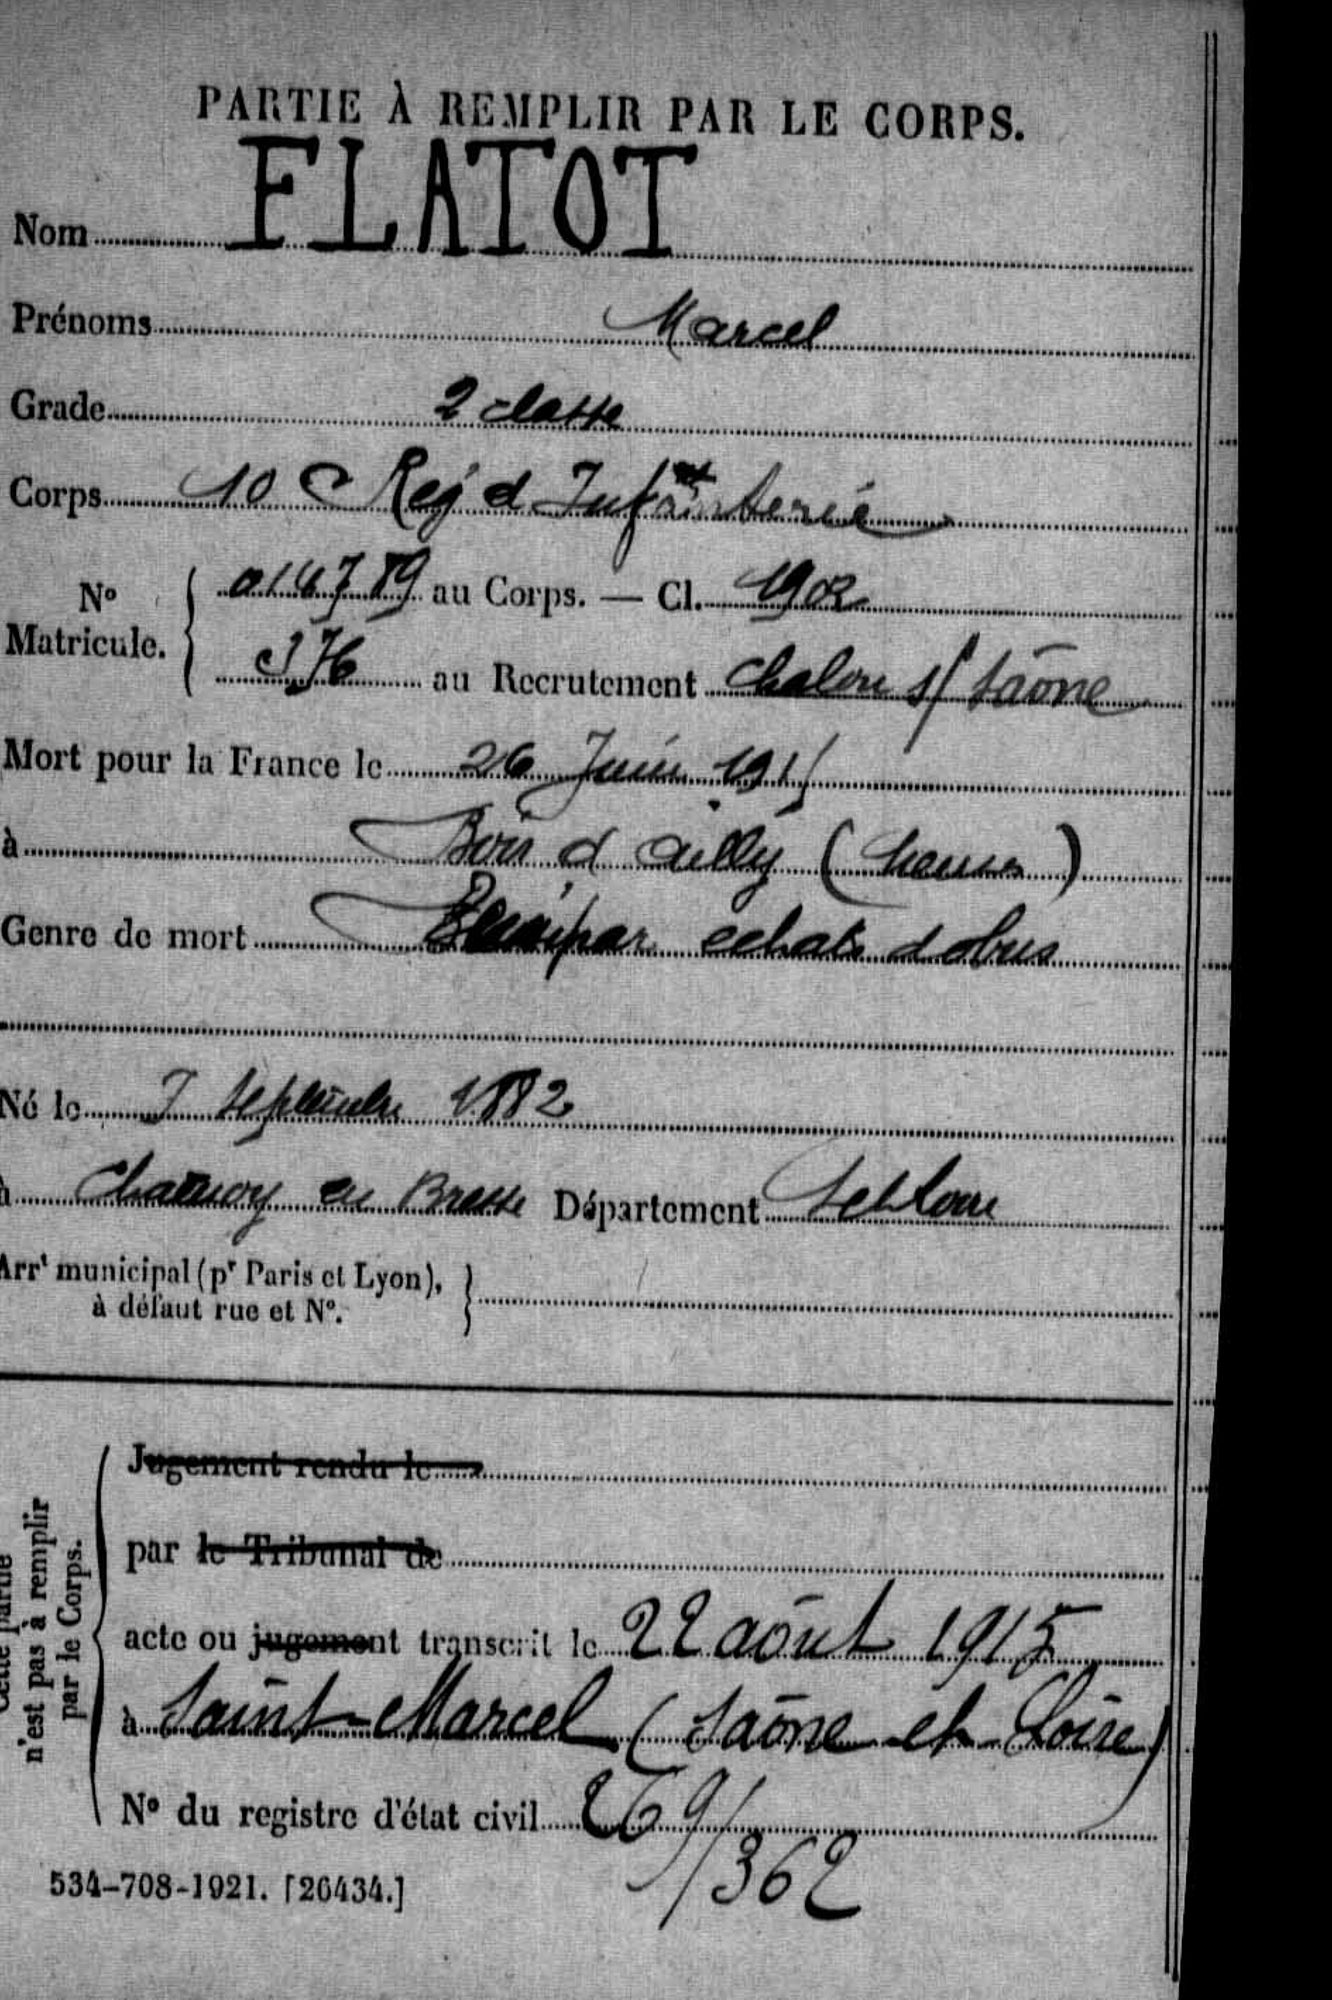 PARTIE À REMPLIR PAR LE CORPS.
Nom FLATOT
Prénoms Marcel
Grade 2 classe
Corps 10 e Reg d Infanterie
No Maticule. au Corps. — Cl. 1902
376 au Recrutement Chalon s/ Saône
Mort pour la France le 26 Juin 1915
à Bois d Ailly (Meuse)
Genre de mort par echats d obus
Né le 7 Septembre 1882
à Charnoy en Bresse Département
Arrt municipal (pr Paris et Lyon),
à défaut rue et No.
Cette partie
n'est pas à remplir
par le Corps.
Jugement rendu le
par le Tribunal de
acte ou jugement transcrit le 22 août 1915
à Saint-Marcel (Saône et Loire)
No du registre d'état civil 269/
/362
534-708-1921. [26434.]